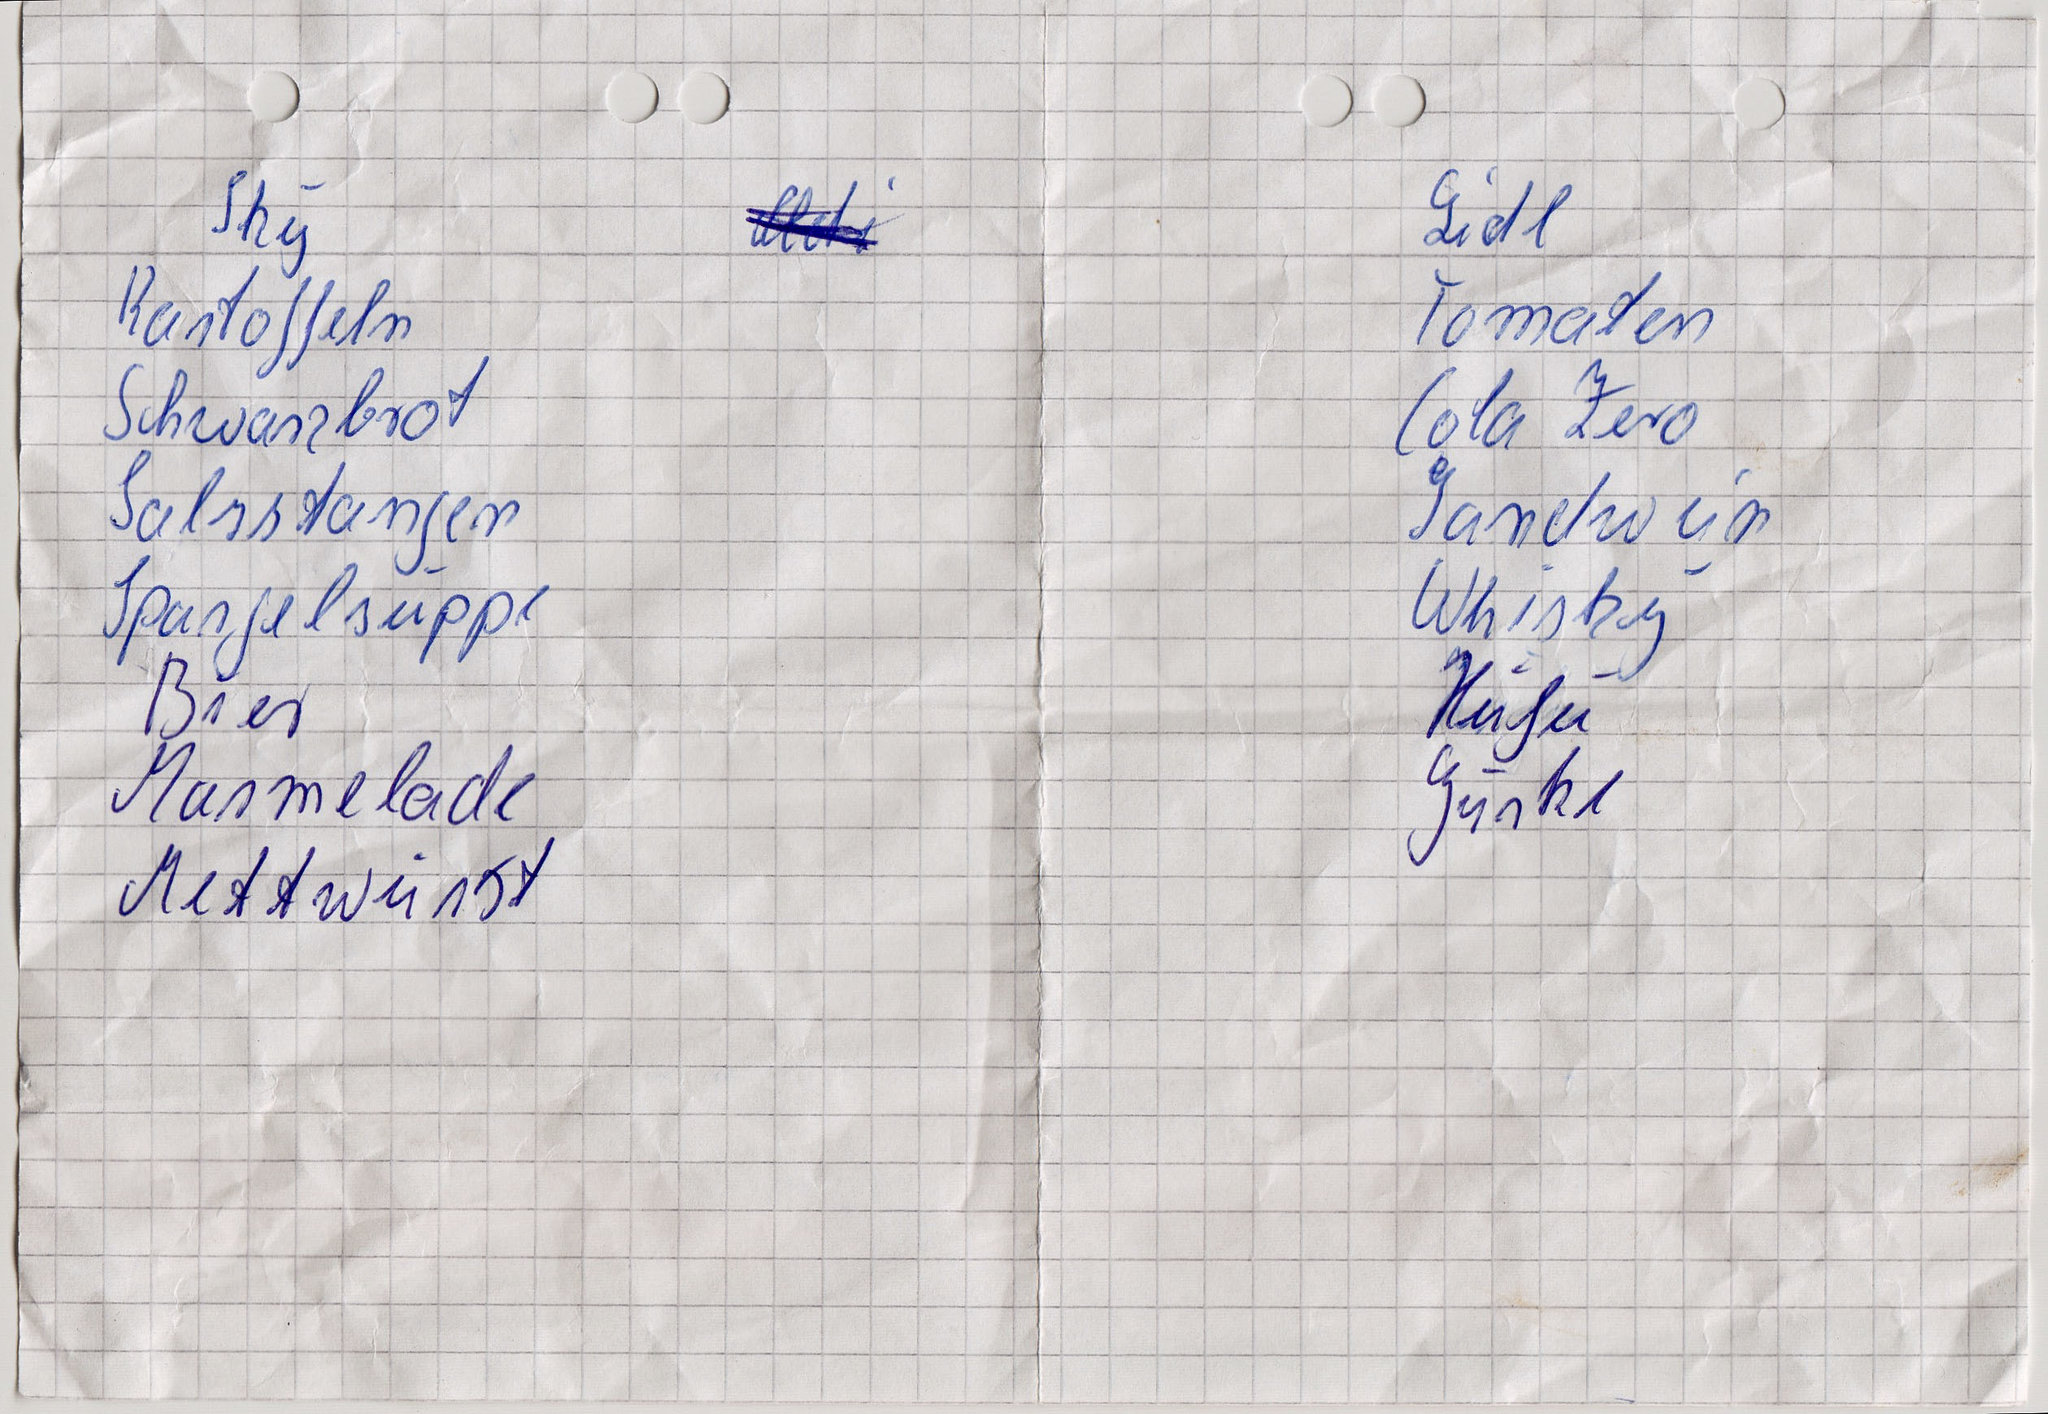 Sky
Kartoffeln
Schwarzbrot
Salzstangen
Spargelsuppe
Bier
Marmelade
Mettwurst
Lidl
Tomaten
Cola Zero
Landwein
Whisky
Gurke